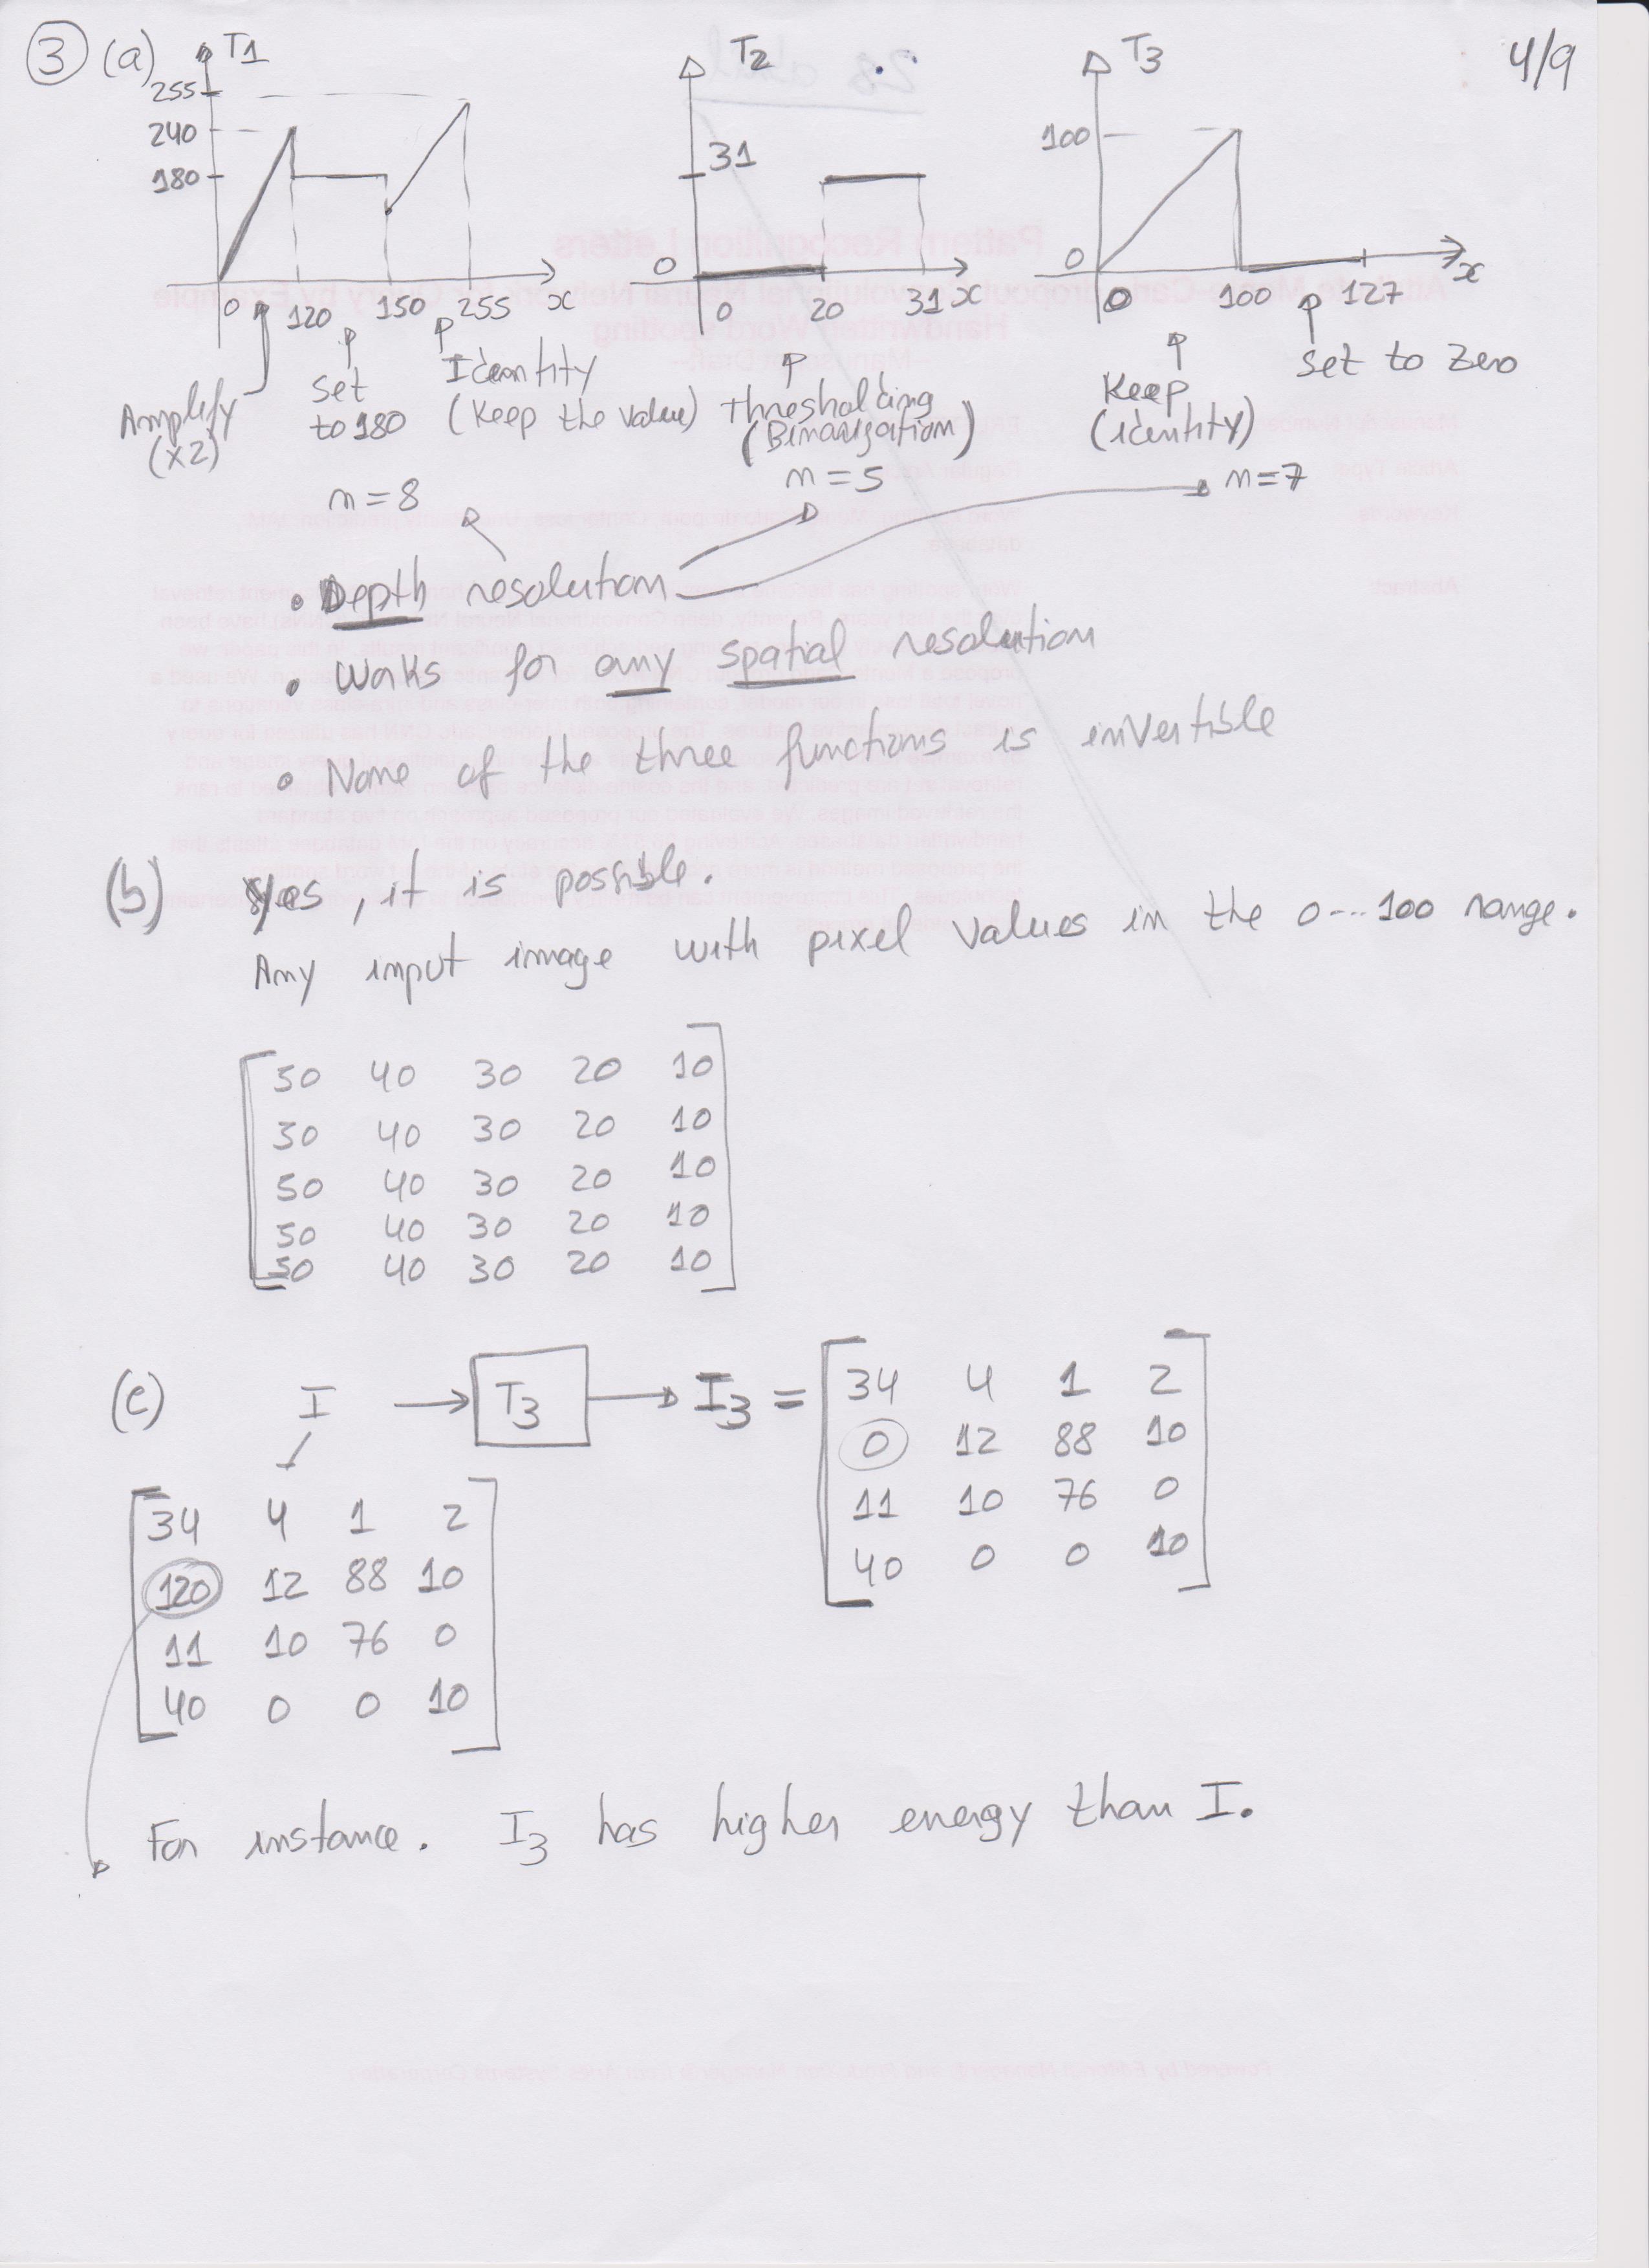 3 (a) T1 T2 T3 4/9
255
240
180
0 120 150 255 x
31
0
0 20 31 x
100
0
0 100 127 x
Amplify
(x2)
Set
to 180
Identity
(Keep the value)
Thresholding
(Binarization)
Keep
(identity)
Set to zero
n=8 n=5 n=7
• Depth resolution
• Works for any spatial resolution
• None of the three functions is invertible
(b) Yes, it is possible.
Any input image with pixel values in the 0...100 range.
50 40 30 20 10
50 40 30 20 10
50 40 30 20 10
50 40 30 20 10
50 40 30 20 10
(c) I → T3 → I3 =
34 4 1 2
0 12 88 10
11 10 76 0
40 0 0 10
34 4 1 2
120 12 88 10
11 10 76 0
40 0 0 10
For instance. I3 has higher energy than I.